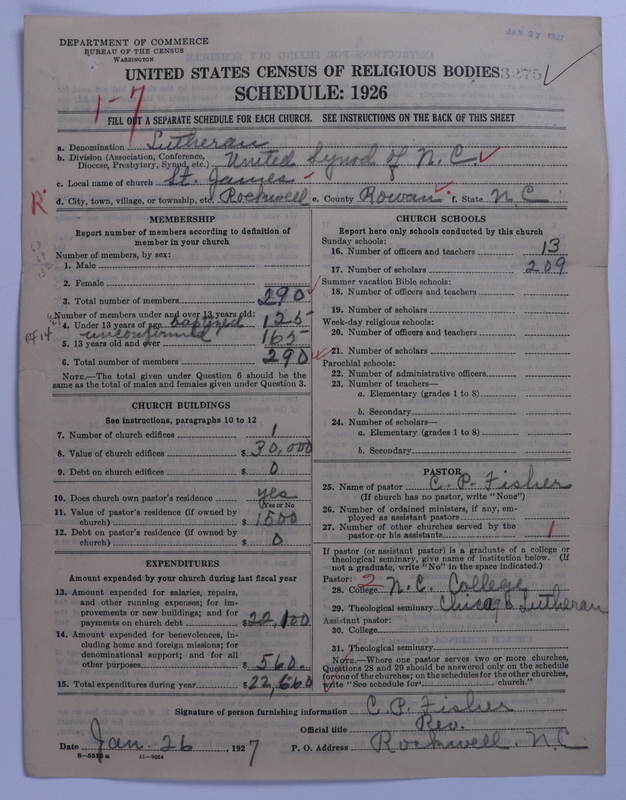 JAN 22 1927
DEPARTMENT OF COMMERCE
BUREAU OF THE CENSUS
WASHINGTON
UNITED STATES CENSUS OF RELIGIOUS BODIES
SCHEDULE: 1926
1-7
FILL OUT A SEPARATE SCHEDULE FOR EACH CHURCH. SEE INSTRUCTIONS ON THE BACK OF THIS SHEET
a. Denomination Lutheran
b. Division (Association, Conference, Diocese, Presbytery, Synod, etc.) United Synod of N.C.
c. Local name of church St. James
d. City, town, village, or township, etc. Rockwell e. County Rowan f. State N.C.
R
MEMBERSHIP
Report number of members according to definition of
member in your church
Number of members, by sex:
1. Male
2. Female
3. Total number of members 290
Number of members under and over 13 years old:
4. Under 13 years of age baptized 125
unconfirmed
5. 13 years old and over 165
6. Total number of members 290
NOTE.—The total given under Question 6 should be the
same as the total of males and females given under Question 3.
CHURCH BUILDINGS
See instructions, paragraphs 10 to 12
7. Number of church edifices 1
8. Value of church edifices $ 30,000
9. Debt on church edifices $ 0
10. Does church own pastor's residence yes
(Yes or No
11. Value of pastor's residence (if owned by
church) $ 1500
12. Debt on pastor's residence (if owned by
church) $ 0
EXPENDITURES
Amount expended by your church during last fiscal year
13. Amount expended for salaries, repairs,
and other running expenses; for im-
provements or new buildings; and for
payments on church debt $ 22,100
14. Amount expended for benevolences, in-
cluding home and foreign missions; for
denominational support; and for all
other purposes $ 560.
15. Total expenditures during year $ 22,660
CHURCH SCHOOLS
Report here only schools conducted by this church
Sunday schools:
16. Number of officers and teachers 13
17. Number of scholars 209
Summer vacation Bible schools:
18. Number of officers and teachers
19. Number of scholars
Week-day religious schools:
20. Number of officers and teachers
21. Number of scholars
Parochial schools:
22. Number of administrative officers
23. Number of teachers—
a. Elementary (grades 1 to 8)
b. Secondary
24. Number of scholars—
a. Elementary (grades 1 to 8)
b. Secondary
PASTOR
25. Name of pastor C. P. Fisher
(If church has no pastor, write "None")
26. Number of ordained ministers, if any, em-
ployed as assistant pastors
27. Number of other churches served by the
pastor or his assistants 1
If pastor (or assistant pastor) is a graduate of a college or
theological seminary, give name of institution below. (If
not a graduate, write "No" in the space indicated.)
Pastor:
28. College 2 N.C. College
29. Theological seminary Chicago Lutheran
Assistant pastor:
30. College
31. Theological seminary
NOTE.—Where one pastor serves two or more churches,
Questions 28 and 29 should be answered only on the schedule
for one of the churches; on the schedules for the other churches,
write "See schedule for church."
Signature of person furnishing information C. P. Fisher
Official title Rev.
Date Jan. 26, 1927 P. O. Address Rockwell, N.C.